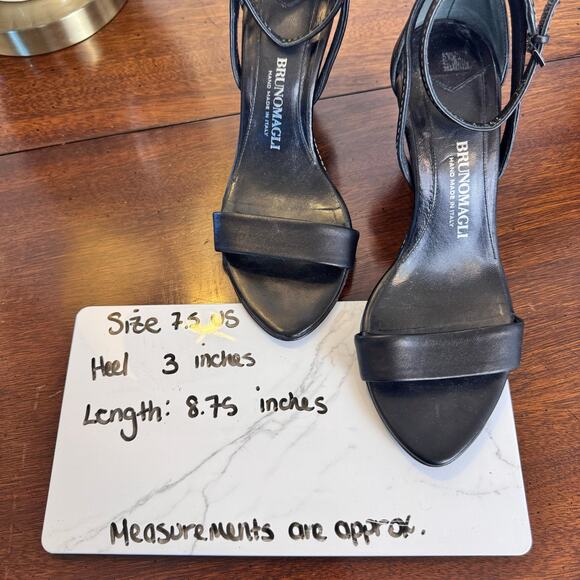 BRUNOMAGLI
HAND MADE IN ITALY
BRUNOMAGLI
HAND MADE IN ITALY
Size 7.5 US
Heel 3 inches
Length: 8.75 inches
Measurements are approx.